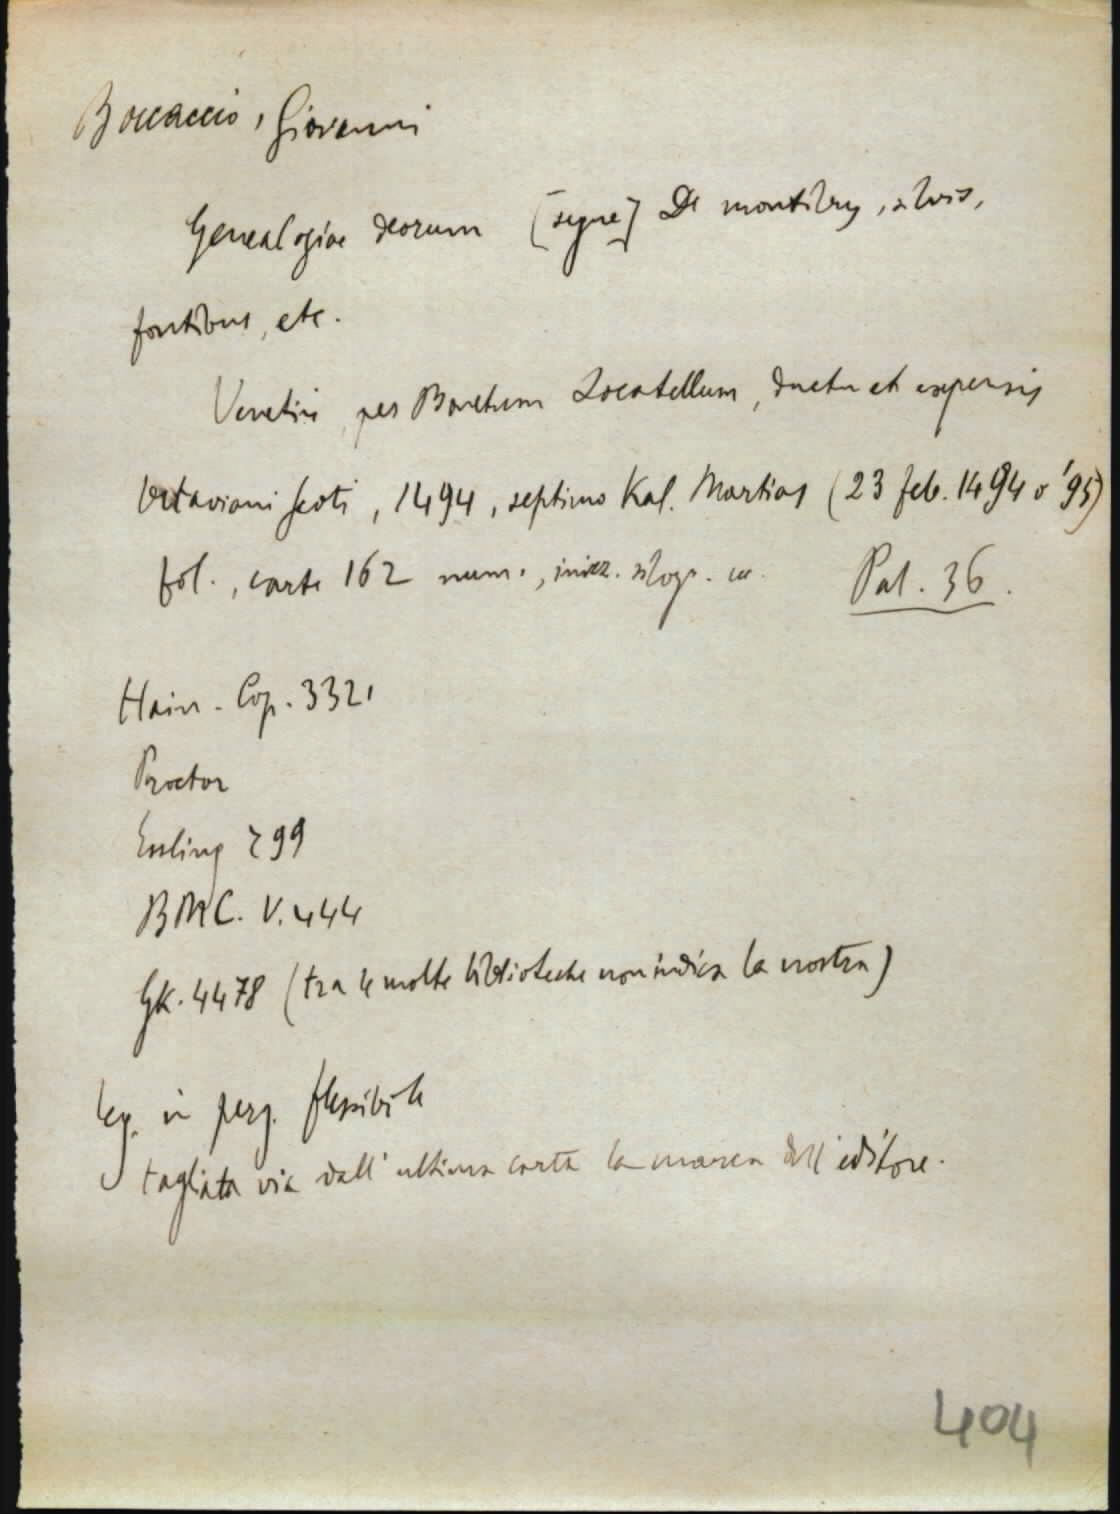 Boccaccio, Giovanni
Genealogiae deorum [segue] De montibus, silvis,
fontibus, etc.
Venetiis, per Bonetum Locatellum, ductu et expensis
Octaviani Scoti, 1494, septimo Kal. Martias (23 feb. 1494 o '95)
fol., carte 162 num., iniz. silogr. Pal. 36.
Hain-Cop. 3321
Proctor
Essling 299
BMC. V. 444
GK. 4478 (tra le molte biblioteche non indica la nostra)
leg. in perg. flessibile
tagliata via dall'ultima carta la marca dell'editore.
404